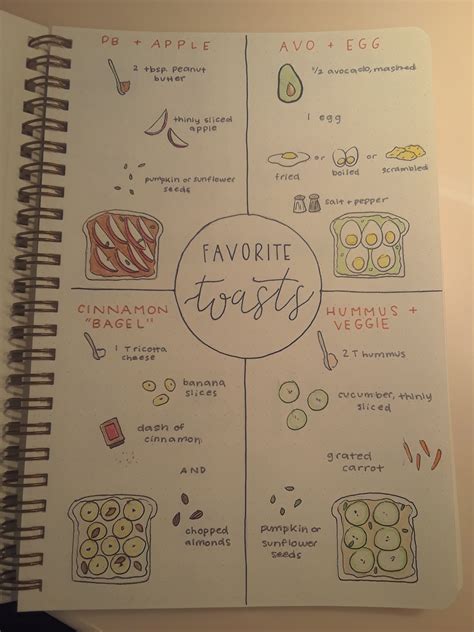 PB + APPLE
2 tbsp. peanut
butter
thinly sliced
apple
pumpkin or sunflower
seeds
AVO + EGG
1/2 avocado, mashed
1 egg
or
or
fried
boiled
scrambled
salt + pepper
FAVORITE
toasts
CINNAMON
"BAGEL"
1 T ricotta
cheese
banana
slices
dash of
cinnamon
AND
chopped
almonds
HUMMUS +
VEGGIE
2 T hummus
cucumber, thinly
sliced
grated
carrot
pumpkin or
sunflower
seeds